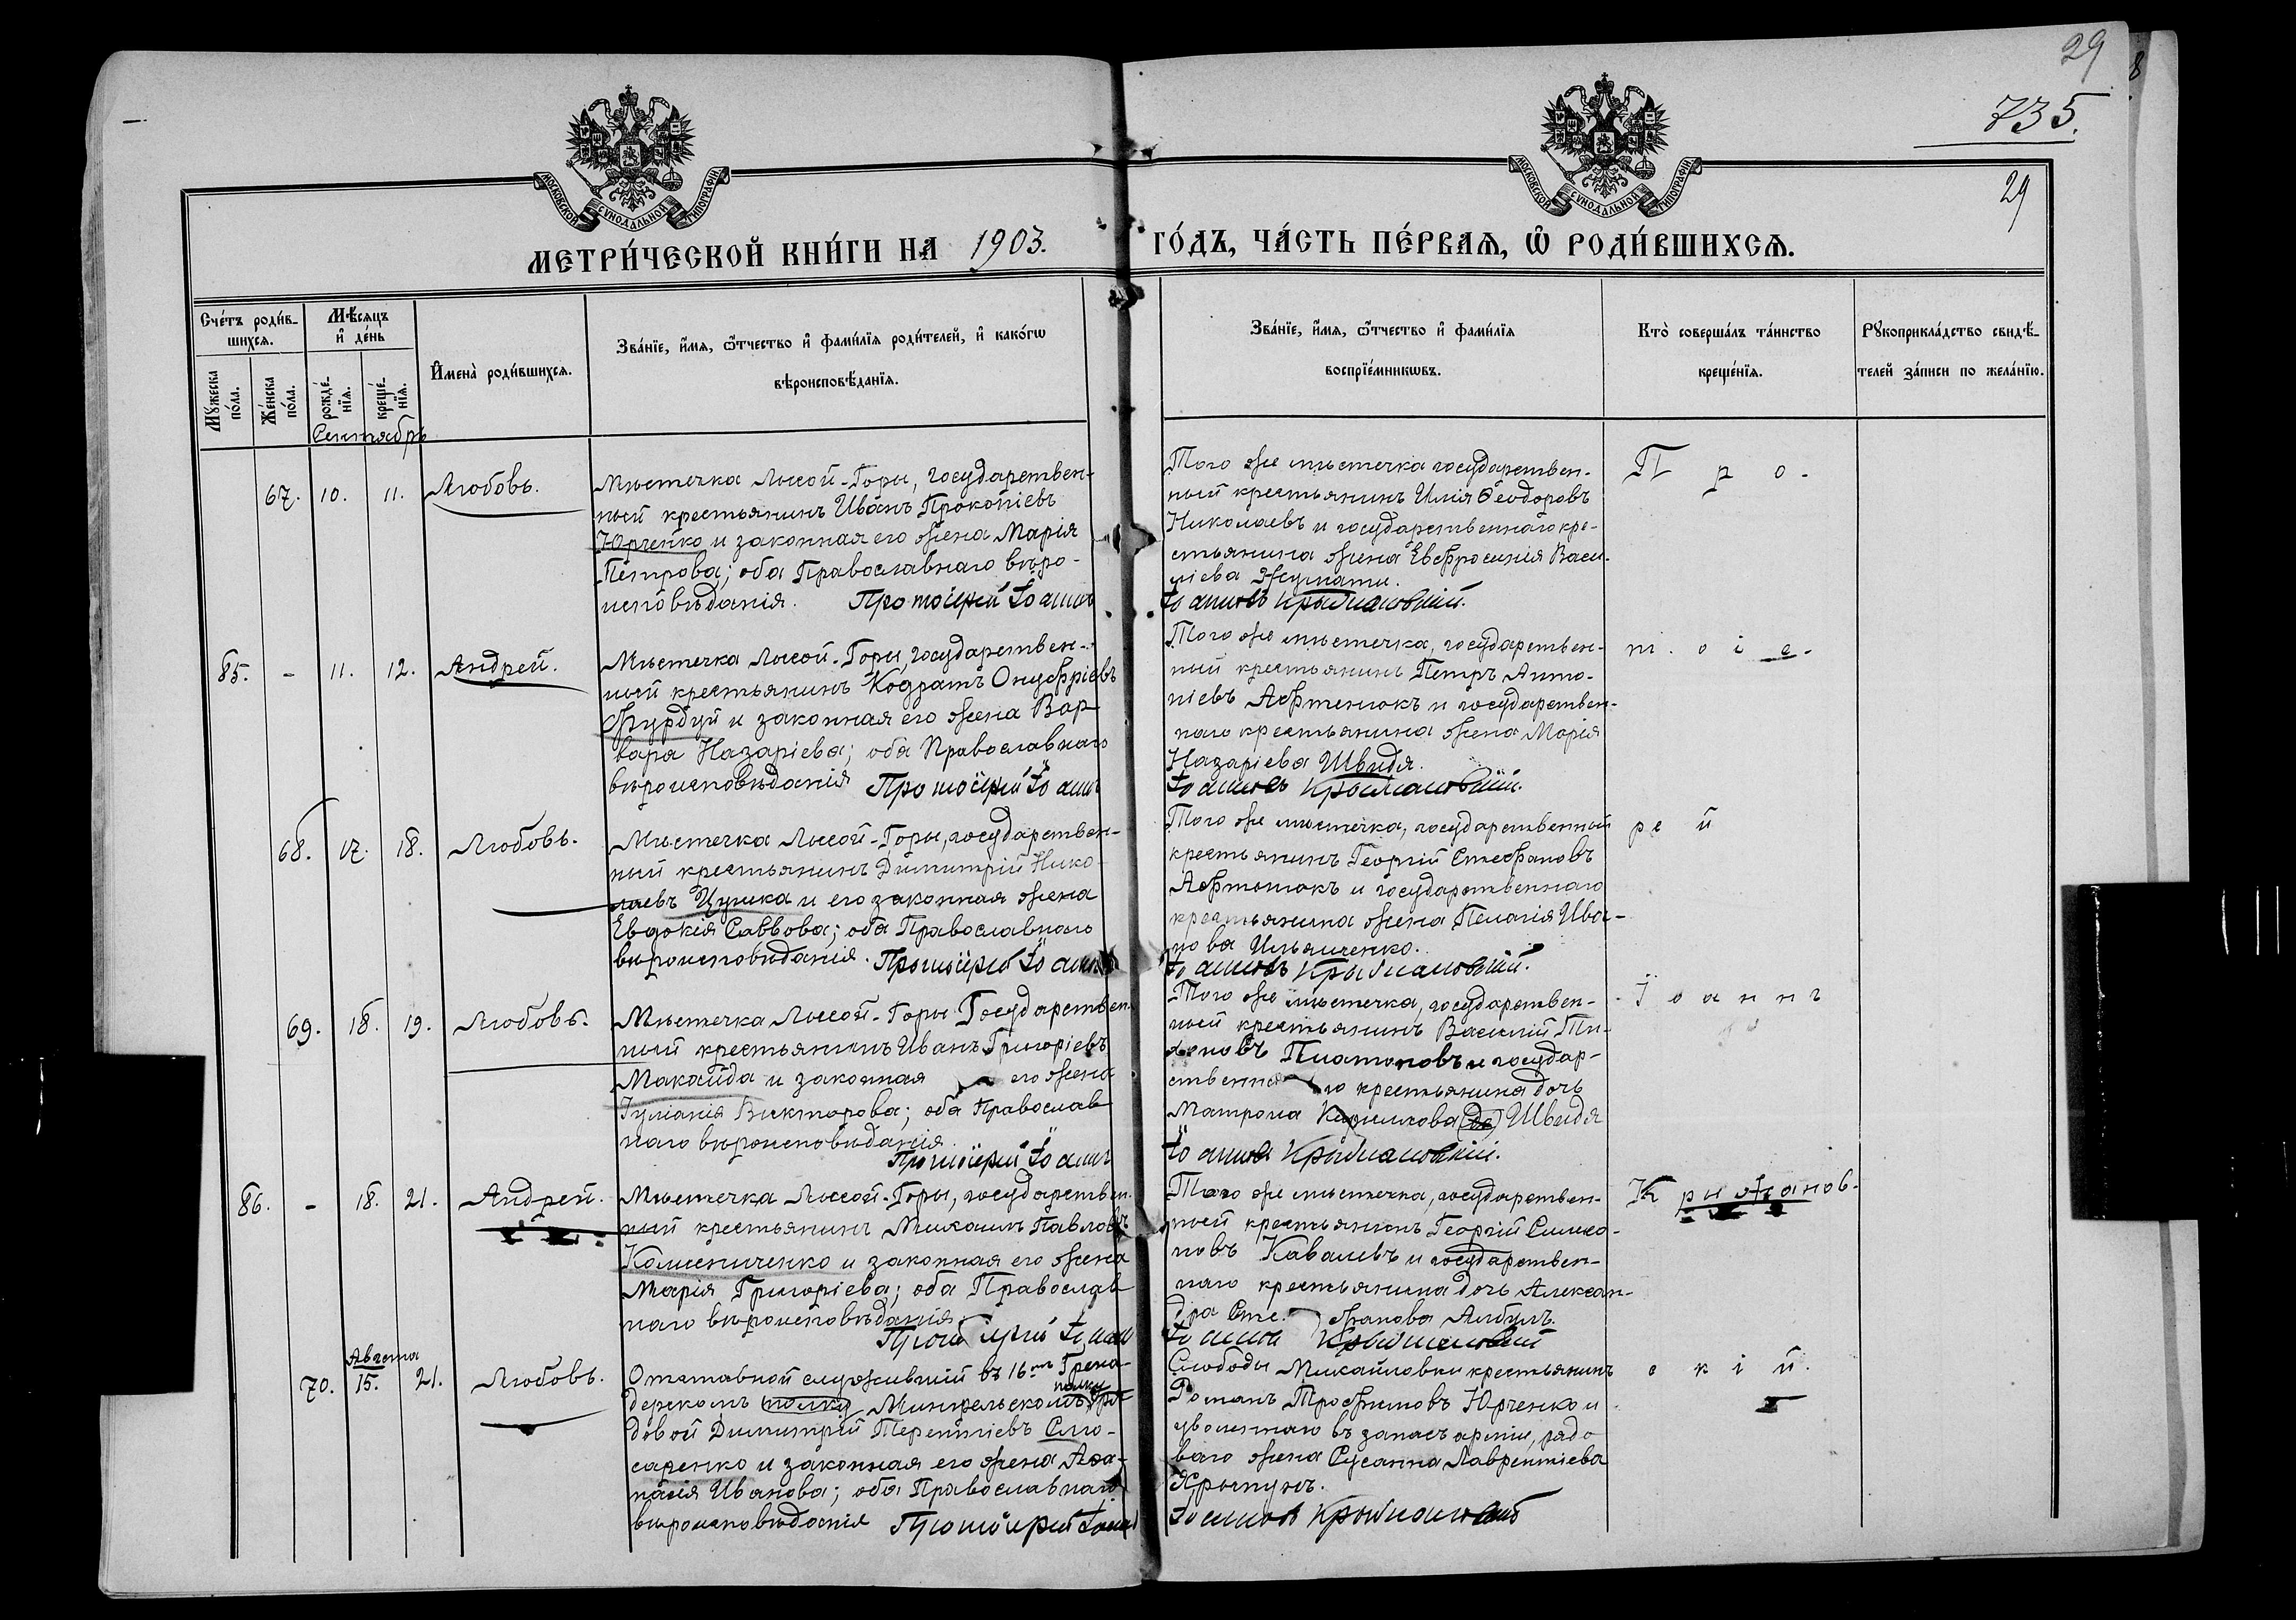 29
8
735.
29
МОСКОВСКОЙ СѴНОДАЛЬНОЙ ТИПОГРАФІИ
МОСКОВСКОЙ СѴНОДАЛЬНОЙ ТИПОГРАФІИ
МЕТРИ́ЧЕСКОЙ КНИ́ГИ НА 1903. ГО́ДЪ, ЧА́СТЬ ПЕ́РВАѦ, Ѽ РОДИ́ВШИХСѦ.
Сче́тъ роди́в-
шихсѧ.
Мꙋжеска
по́ла.
Же́нска
по́ла.
Мѣ́сѧцъ
и҆ де́нь
рожде́-
нїѧ.
креще́-
нїѧ.
И҆мена̀ роди́вшихсѧ.
Зва́нїе, и҆́мѧ, ѻ҆́тчество и҆ фами́лїѧ роди́телей, и҆ како́гѡ
вѣроисповѣ́данїѧ.
Зва́нїе, и҆́мѧ, ѻ҆́тчество и҆ фами́лїѧ
воспрїе́мникѡвъ.
Кто̀ соверша́лъ та́инство
креще́нїѧ.
Рꙋкоприкла́дство свидѣ́-
телей за́писи по жела́нїю.
Сентябрь
67. 10. 11. Любовь.
Мѣстечка Лысой-Горы, государствен-
ный крестьянинъ Иванъ Прокопіевъ
Юрченко и законная его жена Марія
Петрова; оба Православнаго вѣро-
исповѣданія. Протоіерей Іоаннъ
Того же мѣстечка государствен-
ный крестьянинъ Илія Ѳеодоровъ
Николаевъ и государственнаго кре-
стьянина жена Евфросинія Васи-
ліева
Іоаннъ Крыжановскій.
Про-
85. - 11. 12. Андрей.
Мѣстечка Лысой-Горы, государствен-
ный крестьянинъ Кодратъ Онуфріевъ
Фурдуй и законная его жена Вар-
вара Назаріева; оба Православнаго
вѣроисповѣданія Протоіерей Іоаннъ
Того же мѣстечка, государствен-
ный крестьянинъ Петръ Анто-
ніевъ Афтенюкъ и государствен-
наго крестьянина жена Марія
Назаріева Швидя.
Іоаннъ Крыжановскій.
т.оіе-
68. 17. 18. Любовь.
Мѣстечка Лысой-Горы, государствен-
ный крестьянинъ Димитрій Нико-
лаевъ Цушка и его законная жена
Евдокія Саввова; оба Православнаго
вѣроисповѣданія. Протоіерей Іоаннъ
Того же мѣстечка, государственный
крестьянинъ Георгій Стефановъ
Афтенюкъ и государственнаго
крестьянина жена Пелагія Ива-
нова Ильяшенко.
Іоаннъ Крыжановскій.
рей
69. 18. 19. Любовь.
Мѣстечка Лысой-Горы Государствен-
ный крестьянинъ Иванъ Григоріевъ
Макайда и законная его жена
Іуліанія Викторова; оба Православ
наго вѣроисповѣданія.
Протоіерей Іоаннъ
Того же мѣстечка, государствен-
ный крестьянинъ Василій Ти-
хоновъ Платоновъ и государ-
ственнаго крестьянина дочь
Матрона Кириллова Швидя
Іоаннъ Крыжановскій.
Іоаннъ
86. - 18. 21. Андрей.
Мѣстечка Лысой-Горы, государствен-
ный крестьянинъ Михаилъ Павловъ
Колесниченко и законная его жена
Марія Григоріева; оба Православ
наго вѣроисповѣданія.
Протоіерей Іоаннъ
Того же мѣстечка, государствен-
ный крестьянинъ Георгій Симео-
новъ Кавалевъ и государствен-
наго крестьянина дочь Алексан-
дра Сте-фанова Албулъ.
Іоаннъ Крыжановскій
Крижанов-
Августа
70. 15. 21. Любовь.
Отставной служившій въ 16-мъ Грена-
дерскомъ Мингрельскомъ полку ря-
довой Димитрій Терентіевъ Слю-
саренко и законная его жена Аѳа-
насія Иванова; оба Православнаго
вѣроисповѣданія Протоіерей Іоаннъ
Слободы Михайловки крестьянинъ
Романъ Трофимовъ Юрченко и
уволеннаго въ запасъ арміи, рядо
ваго жена Сусанна Лаврентіева
Хрыпунъ.
Іоаннъ Крыжановскій
скій.